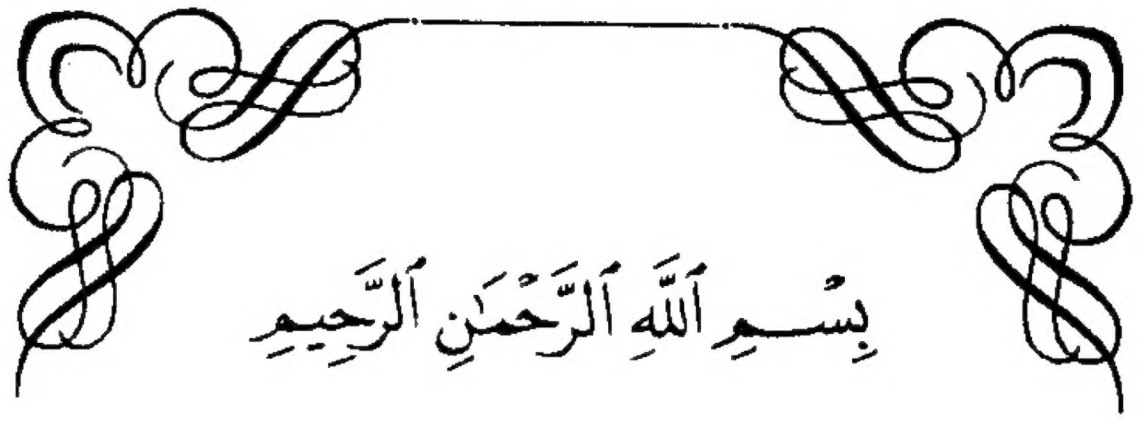 بِسْـــمِ ٱللَّهِ ٱلرَّحْمَٰنِ ٱلرَّحِيمِ